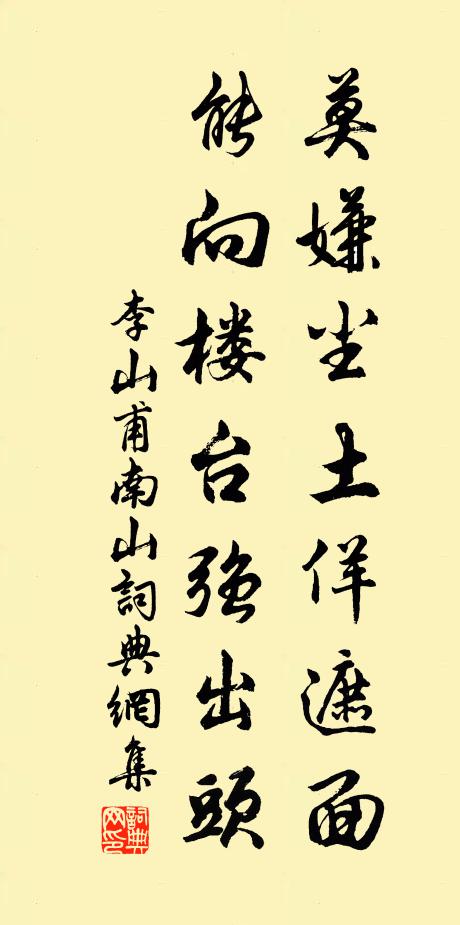 莫嫌尘土佯遮面
能向楼台强出頭
李山甫南山詞典網集
詞典网印